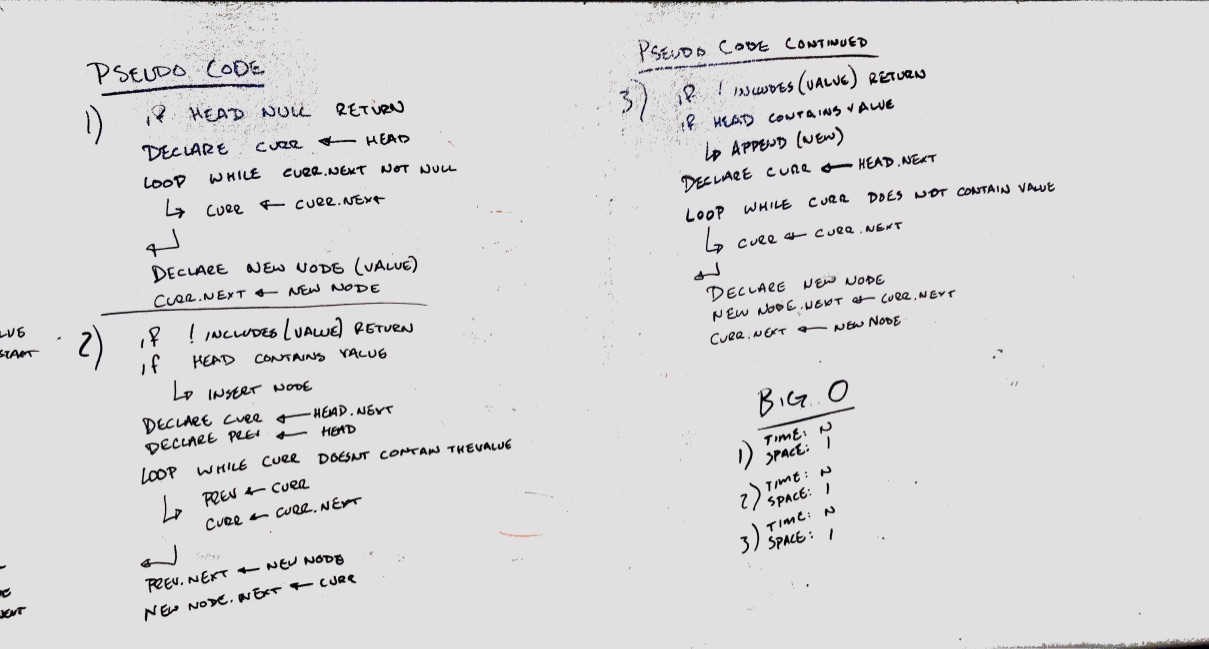 PSEUDO CODE
1) if HEAD NULL RETURN
DECLARE CURR ← HEAD
LOOP WHILE CURR.NEXT NOT NULL
↳ CURR ← CURR.NEXT
↲
DECLARE NEW NODE (VALUE)
CURR.NEXT ← NEW NODE
2) if ! INCLUDES (VALUE) RETURN
if HEAD CONTAINS VALUE
↳ INSERT NODE
DECLARE CURR ← HEAD.NEXT
DECLARE PREV ← HEAD
LOOP WHILE CURR DOESNT CONTAIN THE VALUE
↳ PREV ← CURR
CURR ← CURR.NEXT
↲
PREV.NEXT ← NEW NODE
NEW NODE.NEXT ← CURR
PSEUDO CODE CONTINUED
3) if ! INCLUDES (VALUE) RETURN
if HEAD CONTAINS VALUE
↳ APPEND (NEW)
DECLARE CURR ← HEAD.NEXT
LOOP WHILE CURR DOES NOT CONTAIN VALUE
↳ CURR ← CURR.NEXT
↲
DECLARE NEW NODE
NEW NODE.NEXT ← CURR.NEXT
CURR.NEXT ← NEW NODE
BIG O
1) TIME: N
SPACE: 1
2) TIME: N
SPACE: 1
3) TIME: N
SPACE: 1